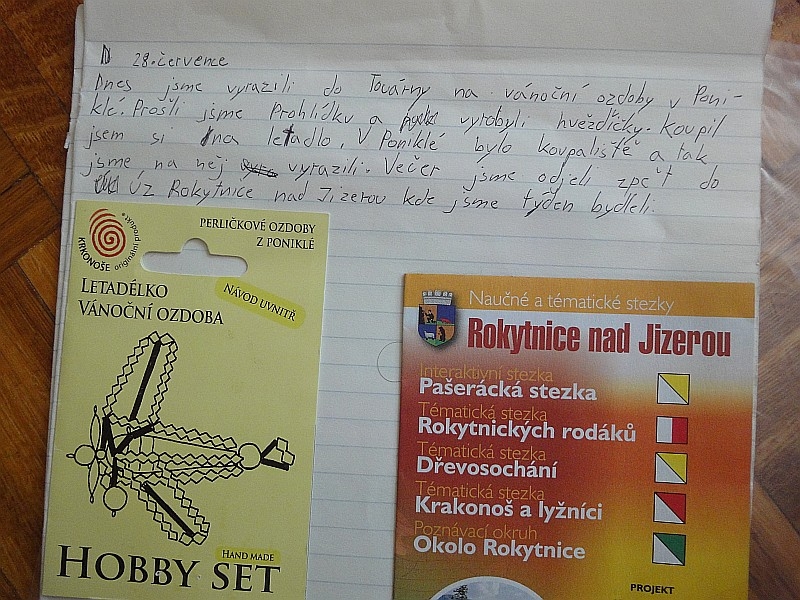 28. července
Dnes jsme vyrazili do Továrny na vánoční ozdoby v Poni-
klé. Prošli jsme Prohlídku a vyrobili hvězdičky. Koupil
jsem si na letadlo. V Poniklé bylo koupaliště a tak
jsme na něj vyrazili. Večer jsme odjeli zpět do
Úz Rokytnice nad Jizerou kde jsme týden bydleli.
KRKONOŠE originální produkt®
PERLIČKOVÉ OZDOBY
Z PONIKLÉ
NÁVOD UVNITŘ
LETADÉLKO
VÁNOČNÍ OZDOBA
HAND MADE
HOBBY SET
Naučné a tématické stezky
Rokytnice nad Jizerou
Interaktivní stezka
Pašerácká stezka
Tématická stezka
Rokytnických rodáků
Tématická stezka
Dřevosochání
Tématická stezka
Krakonoš a lyžníci
Poznávací okruh
Okolo Rokytnice
PROJEKT